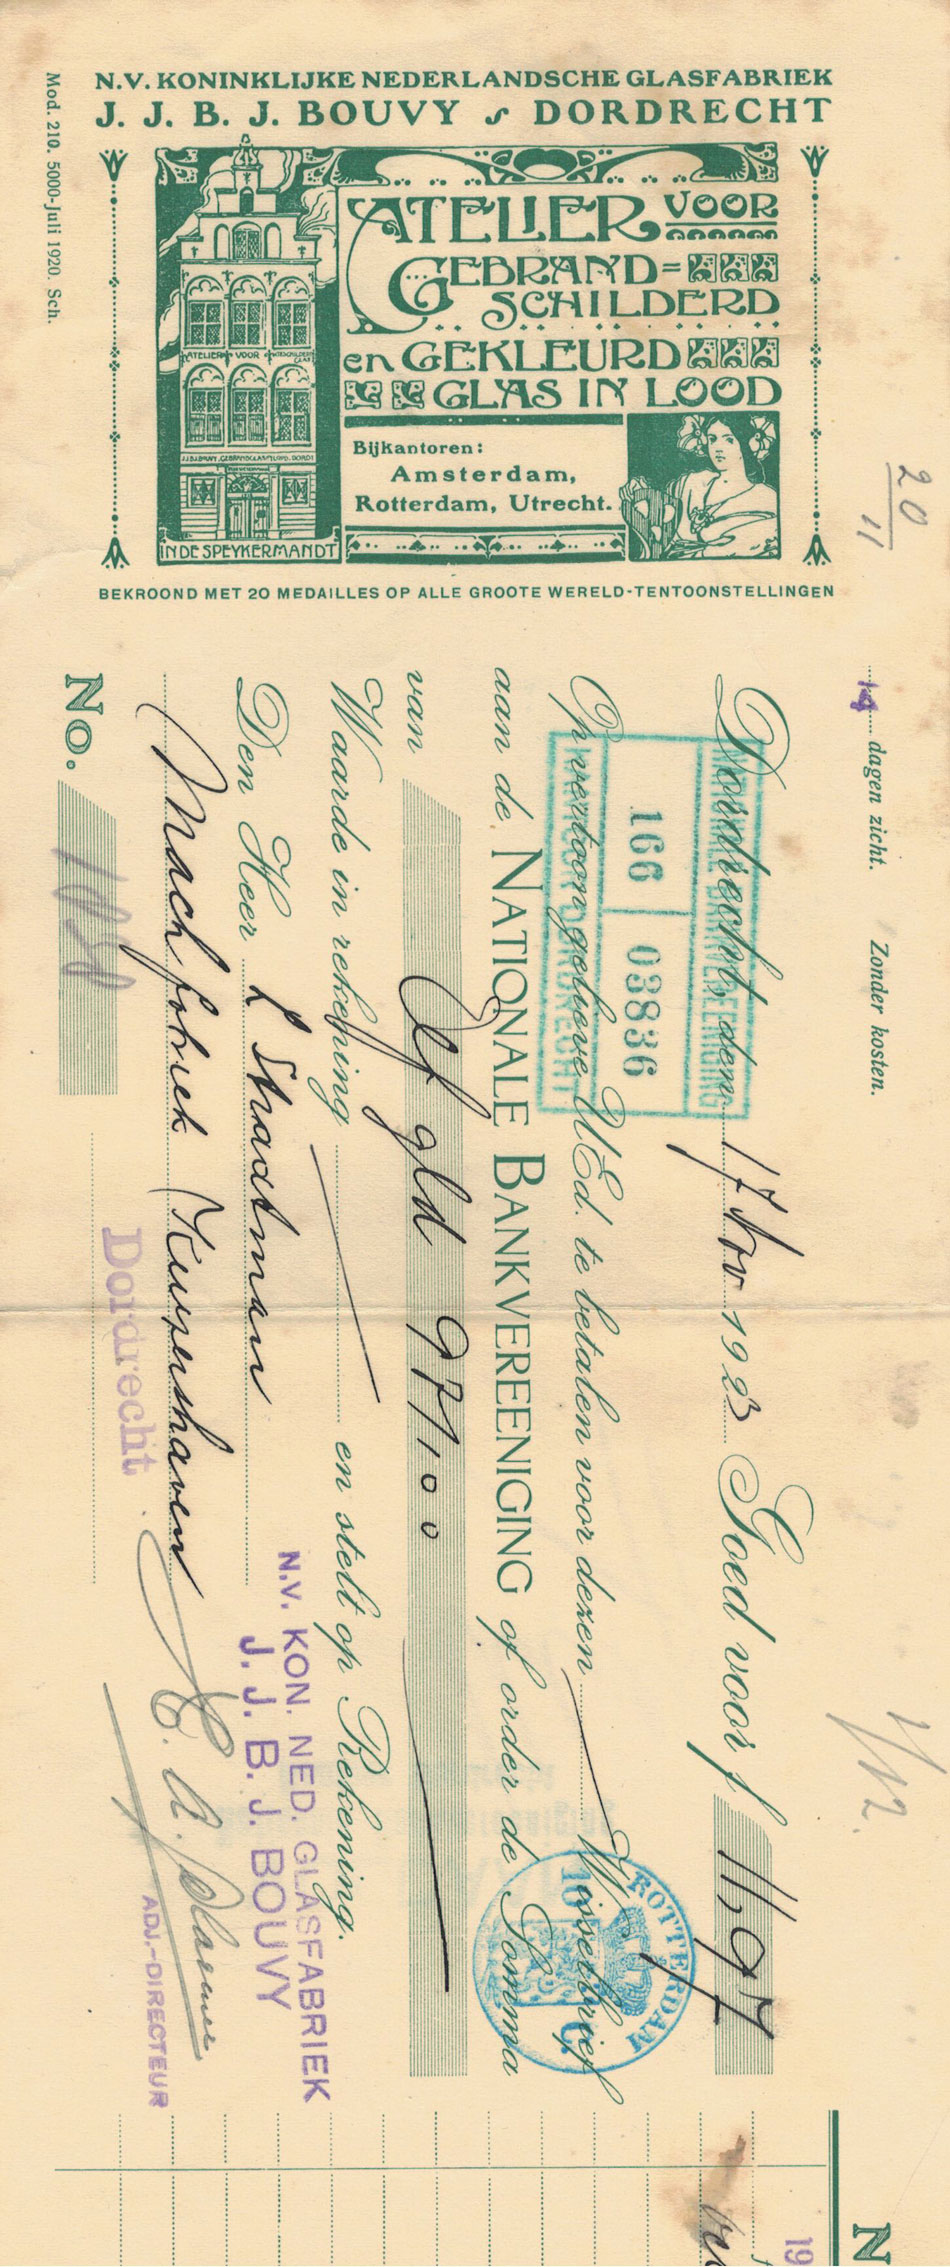 N.V. KONINKLIJKE NEDERLANDSCHE GLASFABRIEK
J. J. B. J. BOUVY DORDRECHT
ATELIER VOOR
GEBRAND=
SCHILDERD
en GEKLEURD
GLAS IN LOOD
ATELIER VOOR
IN DE SPEYKERMANDT
Bijkantoren:
Amsterdam,
Rotterdam, Utrecht.
BEKROOND MET 20 MEDAILLES OP ALLE GROOTE WERELD-TENTOONSTELLINGEN
Mod. 210. 5000-Juli 1920. Sch.
20
11
14 dagen zicht. Zonder kosten.
1/12.
Dordrecht, den 17 Nov 1923 Goed voor f 11,97
NATIONALE BANKVEREENIGING
166 03836
KANTOOR DORDRECHT
Op vertoon gelieve UEd. te betalen voor dezen Wisselbrief
aan de NATIONALE BANKVEREENIGING of order de Somma
van Elf gld 97/100
ROTTERDAM
10 C.
Waarde in rekening en stelt op Rekening.
Den Heer L Straatman
Machfabriek Kuipershaven
Dordrecht
No. 1050
N.V. KON. NED. GLASFABRIEK
J. J. B. J. BOUVY
ADJ.-DIRECTEUR
N
19